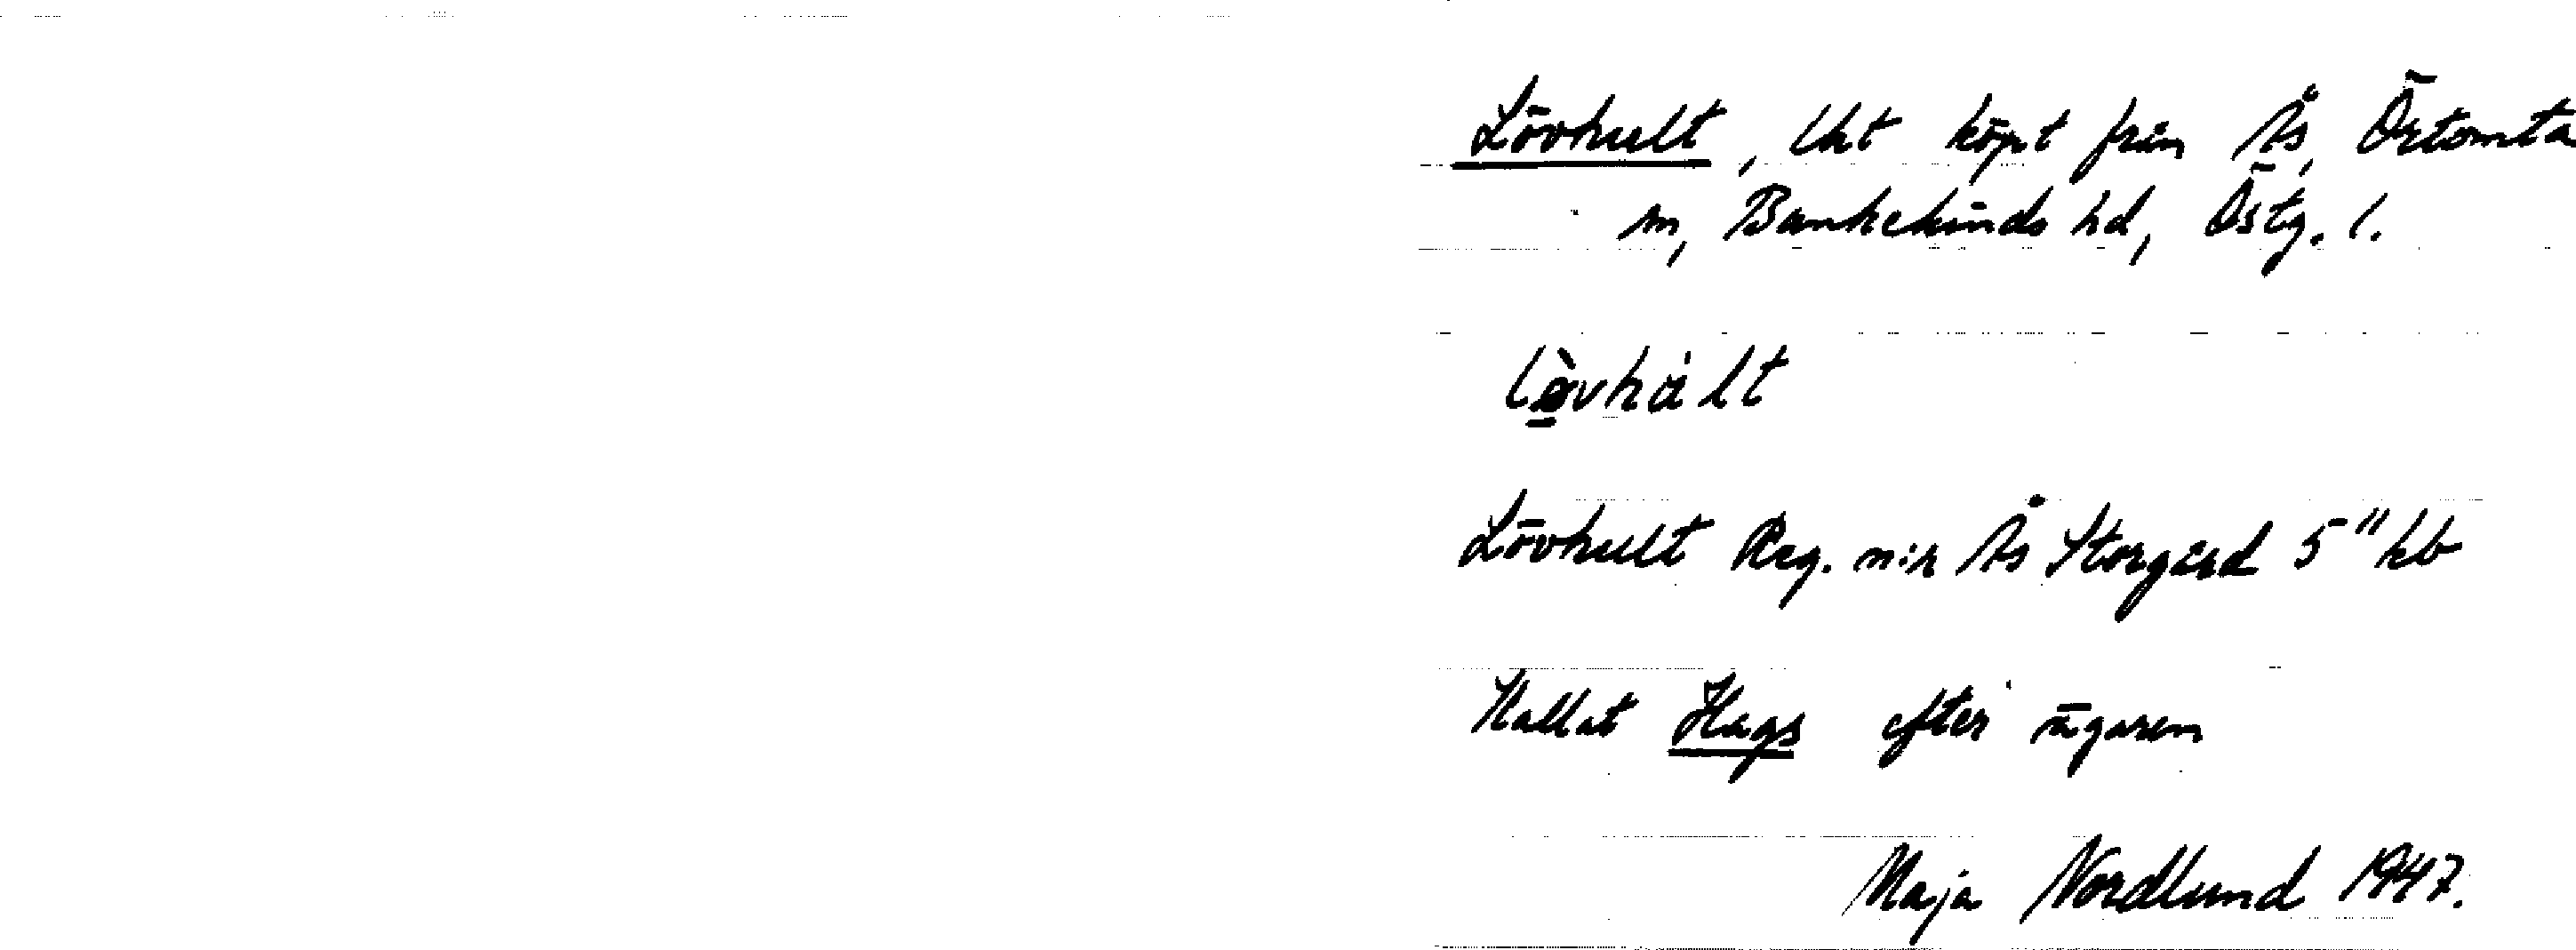 Lövhult, lht köpt från Ås, Örtomta
sn, Bankekinds hd, Östg. l.
lǫ̀vhålt
Lövhult Reg. n:r Ås Storgård 5" hb
Kallat Hags efter ägaren
Maja Nordlund 1947.